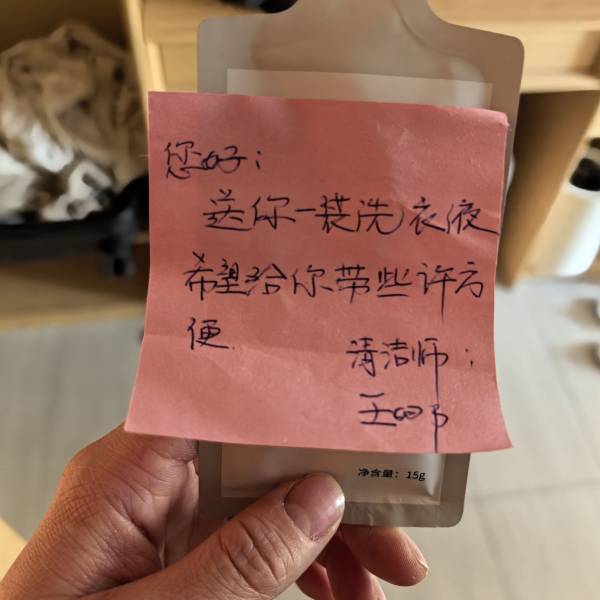 您好：
送你一装洗衣液
希望给你带些许方
便.
清洁师：
净含量：15g